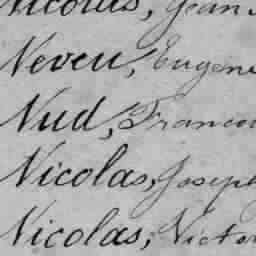 Nicolas, Jean
Neveu, Eugène
Nud, Francoi
Nicolas, Joseph
Nicolas, Victor